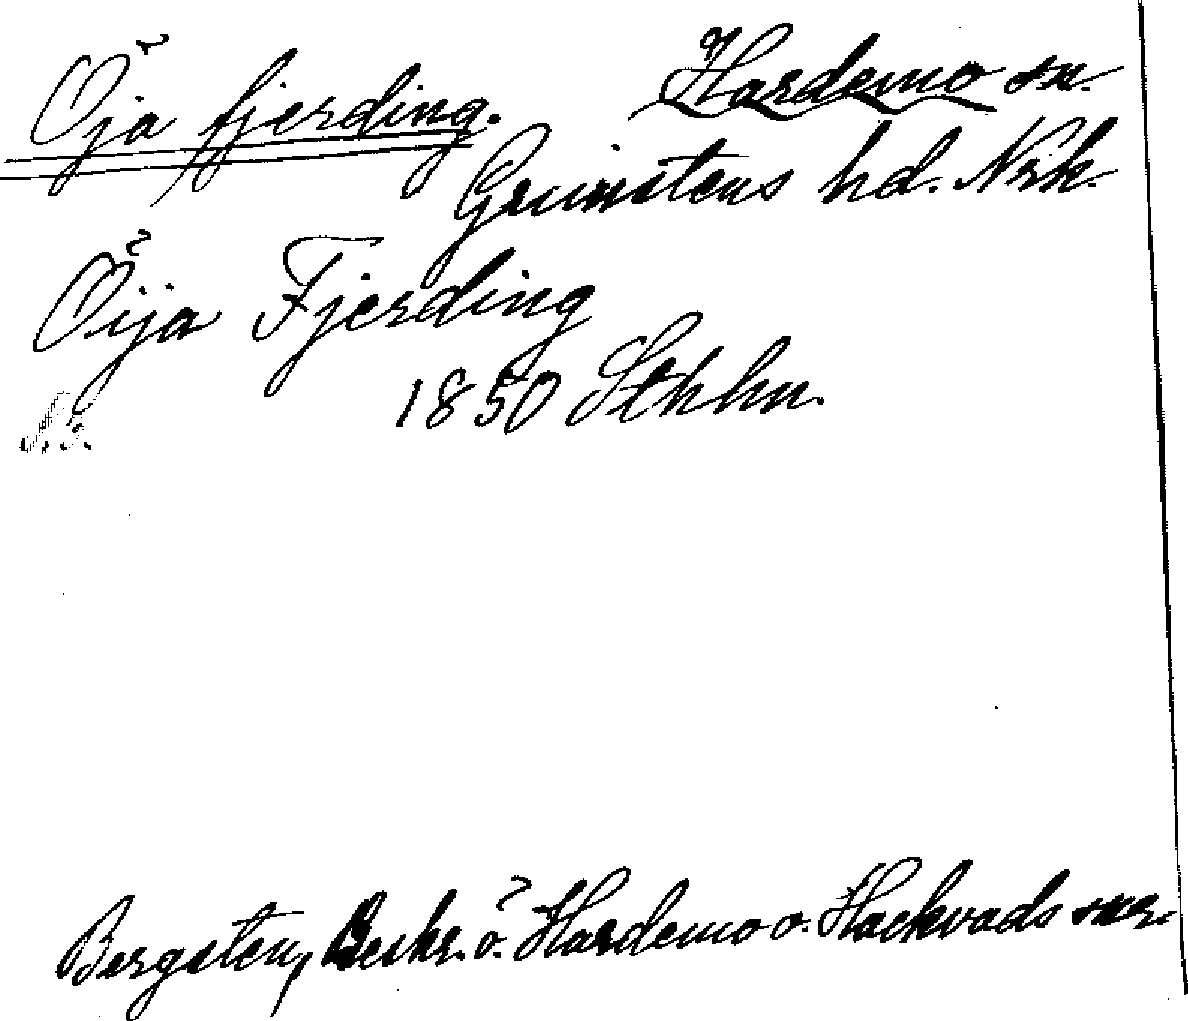 Öja fjerding. Hardemo sn.
Grimstens hd. Nrk.
Öija Fjerding
1850 Sthhn.
Bergsten, Beskr. ö. Hardemo o. Hackvads snr.